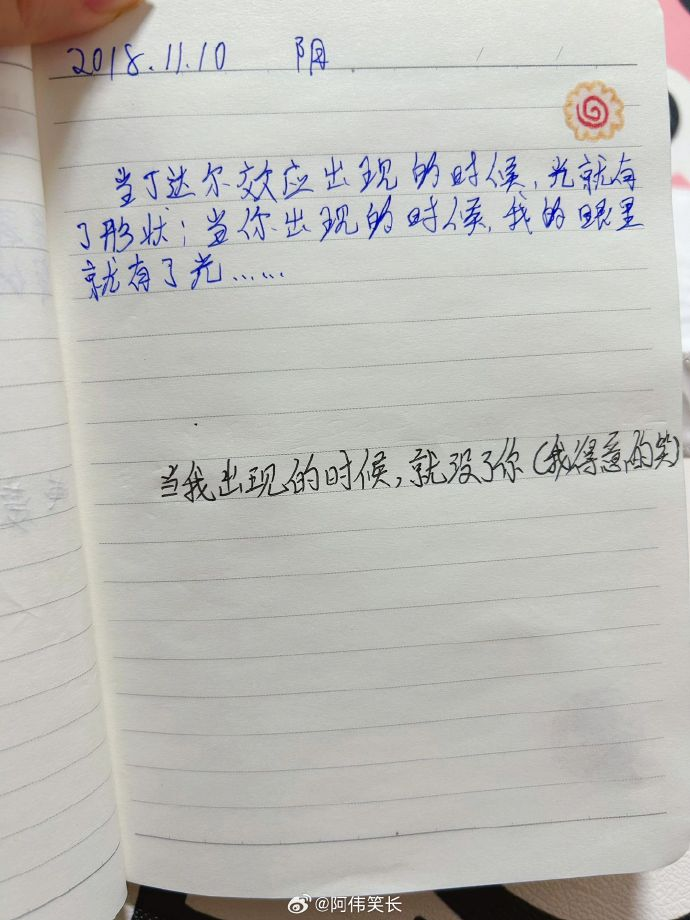 2018.11.10 阴
当丁达尔效应出现的时候,光就有
了形状;当你出现的时候,我的眼里
就有了光……
当我出现的时候,就没了你(我得意的笑)
@阿伟笑长